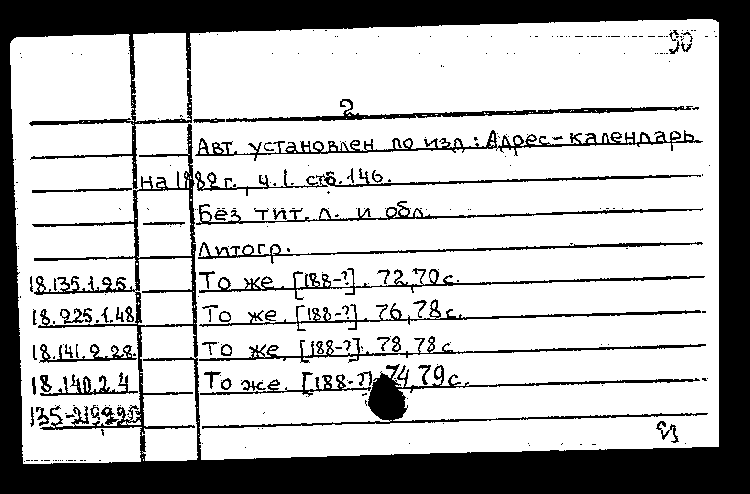 90
2
Авт. установлен по изд.: Адрес-календарь
на 1882 г., ч. I. стб. 146.
Без тит. л. и обл.
Литогр.
18.135.1.25. То же. [188-?]. 72,70 с.
18.225.1.48 То же. [188-?]. 76,78 с.
18.141.2.28. То же. [188-?]. 78,78 с
18.140.2.4 То же. [188-?] 74,79 с.